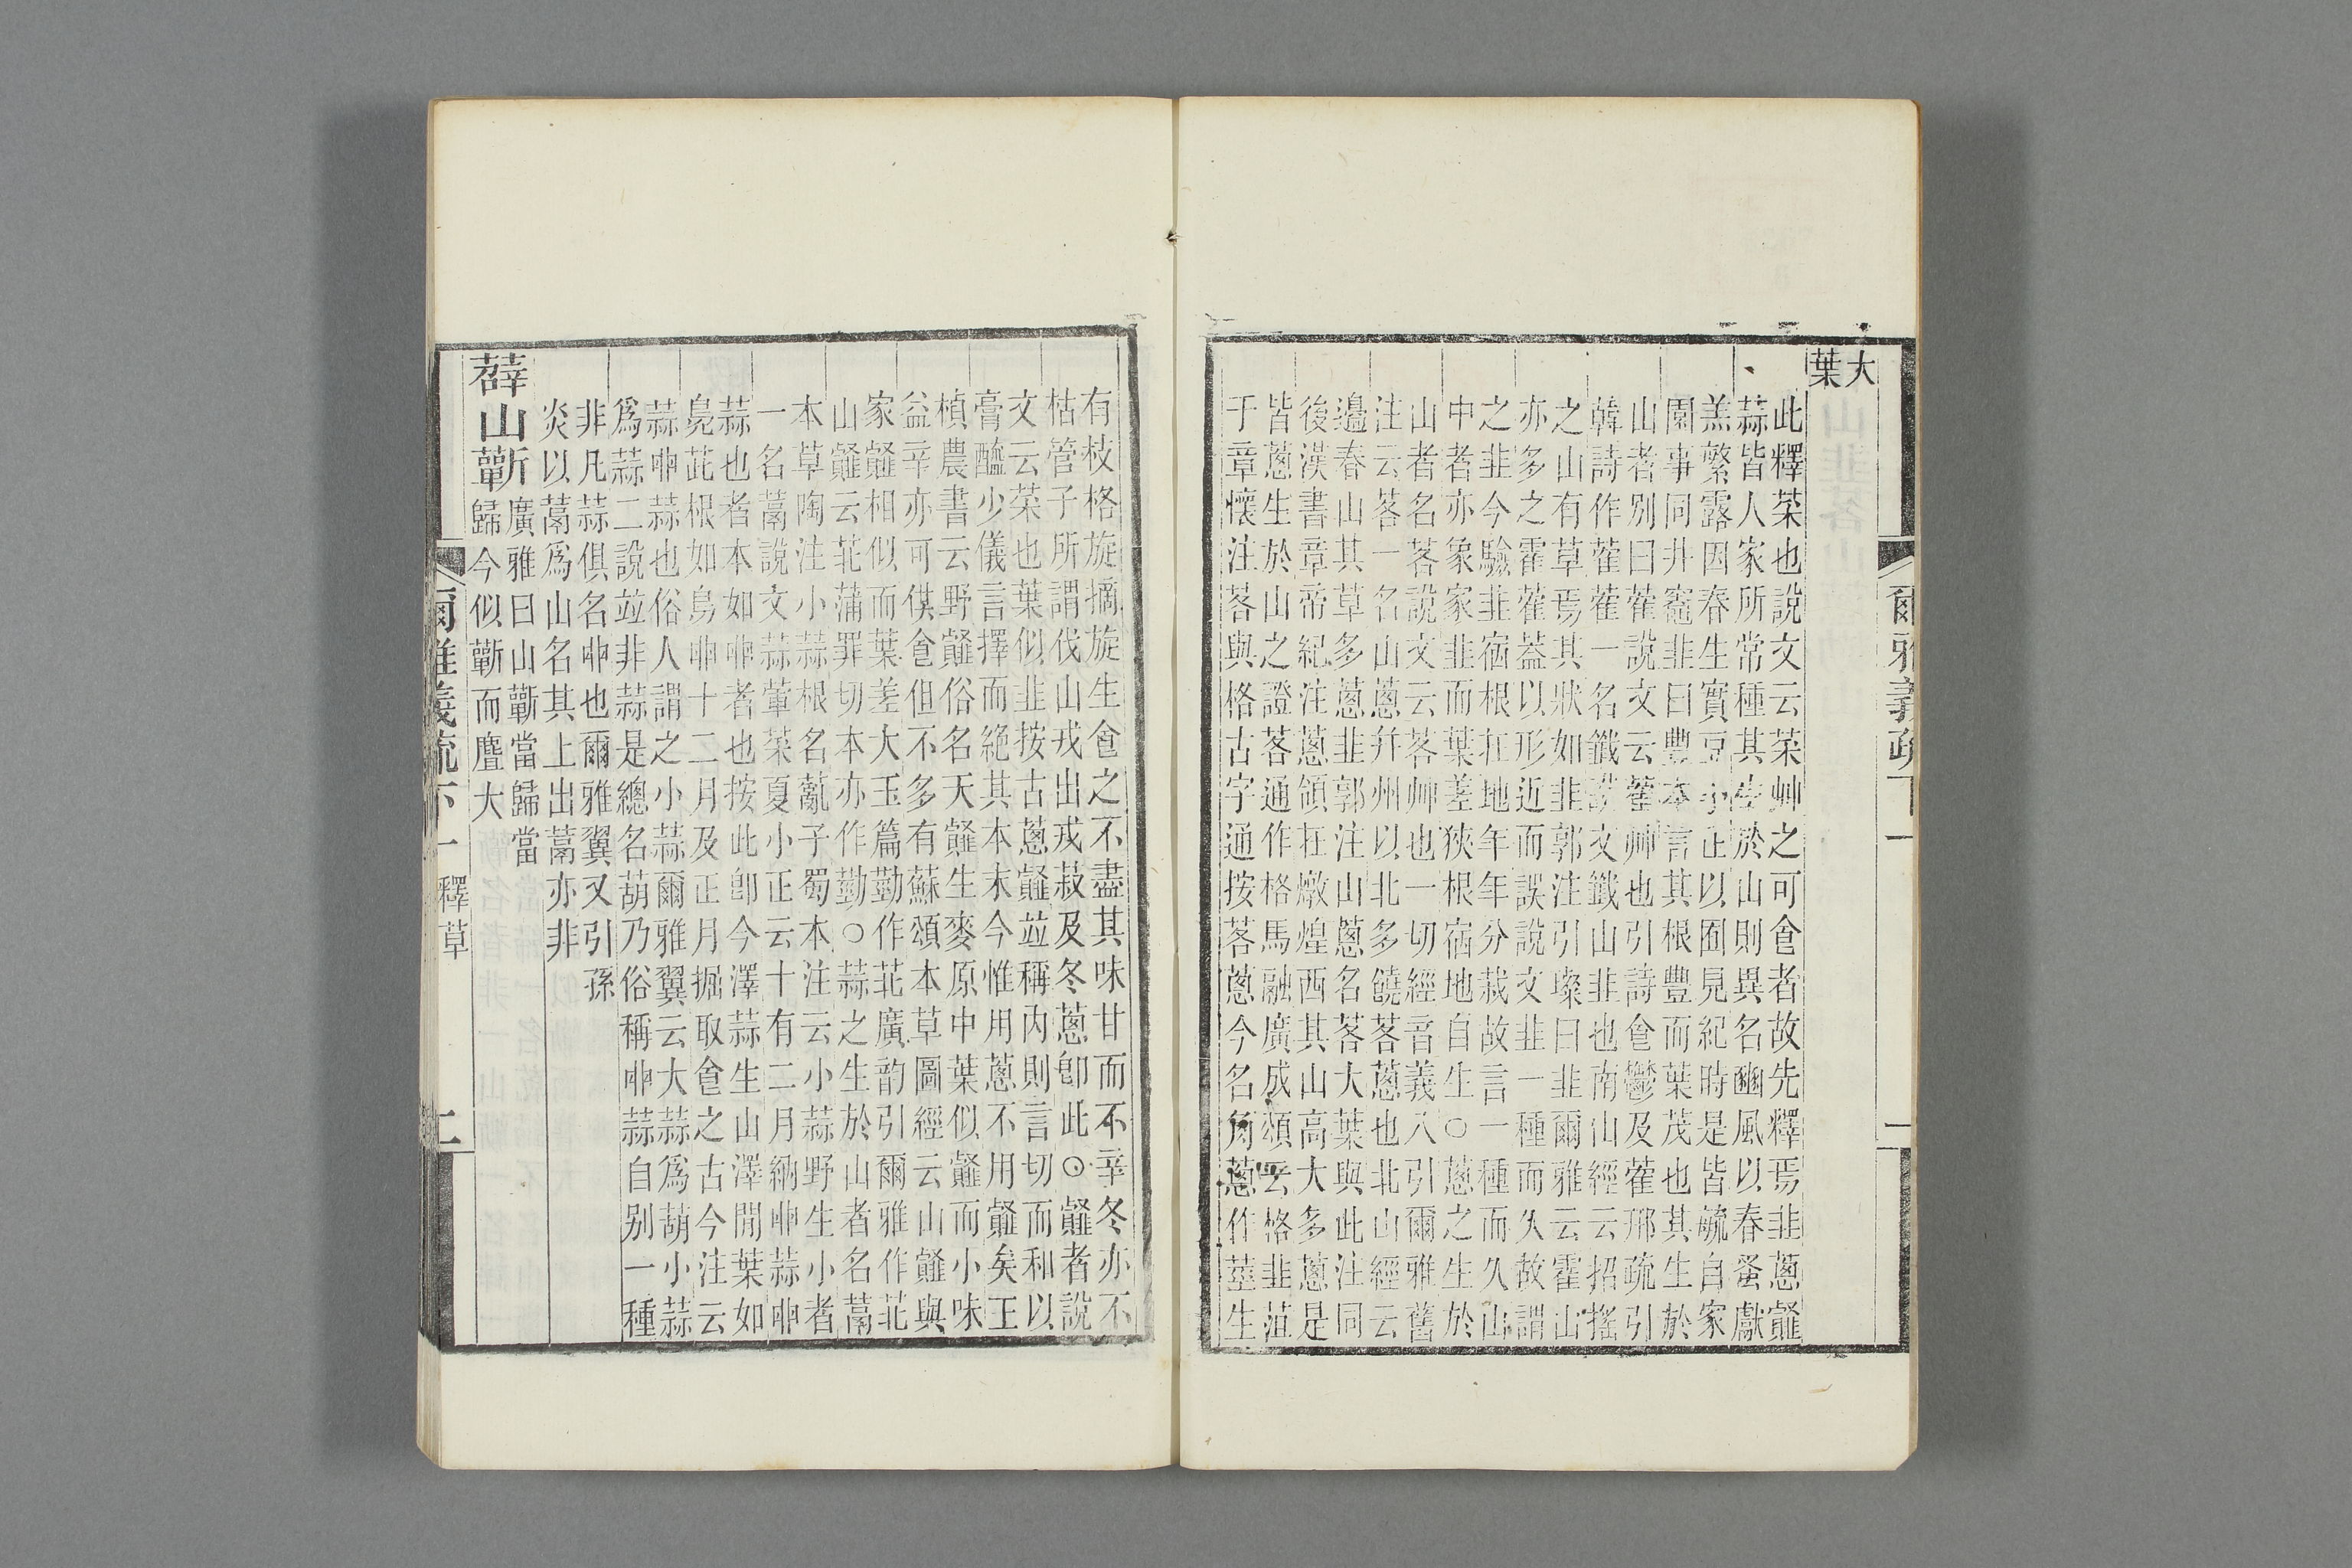 大
葉
此釋菜也說文云菜艸之可㑹者故先釋焉韭蔥䪥
蒜皆人家所常種其生於山則異名豳風以春蚤獻
羔繁露因春生實豆小正以囿見紀時是皆毓自家
園事同井竈韭曰豐本言其根豐而葉茂也其生於
山者别曰藿說文云藿艸也引詩㑹鬱及藿邢疏引
韓詩作藿藿一名䥫說文䥫山韭也南山經云招搖
之山有草焉其狀如韭郭注引璨曰韭爾雅云霍山
亦多之霍藿蓋以形近而誤說文韭一種而久故謂
之韭今驗韭宿根在地年年分栽故言一種而久山
中者亦象家韭而葉差狹根宿地自生○蔥之生於
山者名茖說文云茖艸也一切經音義八引爾雅舊
注云茖一名山蔥并州以北多饒茖蔥也北山經云
邊春山其草多蔥韭郭注山蔥名茖大葉與此注同
後漢書章帝紀注蔥領在燉煌西其山高大多蔥是
皆蔥生於山之證茖通作格馬融廣成頌云格韭菹
于章懷注茖與格古字通按茖蔥今名角蔥作莖生
有枝格旋摘旋生㑹之不盡其味甘而不辛冬亦不
枯管子所謂伐山戎出戎菽及冬蔥卽此○䪥者說
文云菜也葉似韭按古蔥䪥竝稱内則言切而和以
膏醯少儀言擇而絶其本末今惟用蔥不用䪥矣王
楨農書云野䪥俗名天䪥生麥原中葉似䪥而小味
益辛亦可供㑹但不多有蘇頌本草圖經云山䪥與
家䪥相似而葉差大玉篇勤作茈廣韵引爾雅作茈
山䪥云茈蒲罪切本亦作勤○蒜之生於山者名蒚
本草陶注小蒜根名䔉子蜀本注云小蒜野生小者
一名蒚說文蒜葷菜夏小正云十有二月納卵蒜卵
蒜也者本如卵者也按此卽今澤蒜生山澤閒葉如
鳧茈根如鳥卵十二月及正月掘取㑹之古今注云
蒜卵蒜也俗人謂之小蒜爾雅翼云大蒜爲葫小蒜
爲蒜二說竝非蒜是總名葫乃俗稱卵蒜自别一種
非凡蒜俱名卵也爾雅翼又引孫
炎以蒚爲山名其上出蒚亦非
薜山蘄
廣雅曰山蘄當歸當
歸今似蘄而麤大
爾雅義疏下一 釋草 二
爾雅義疏下一